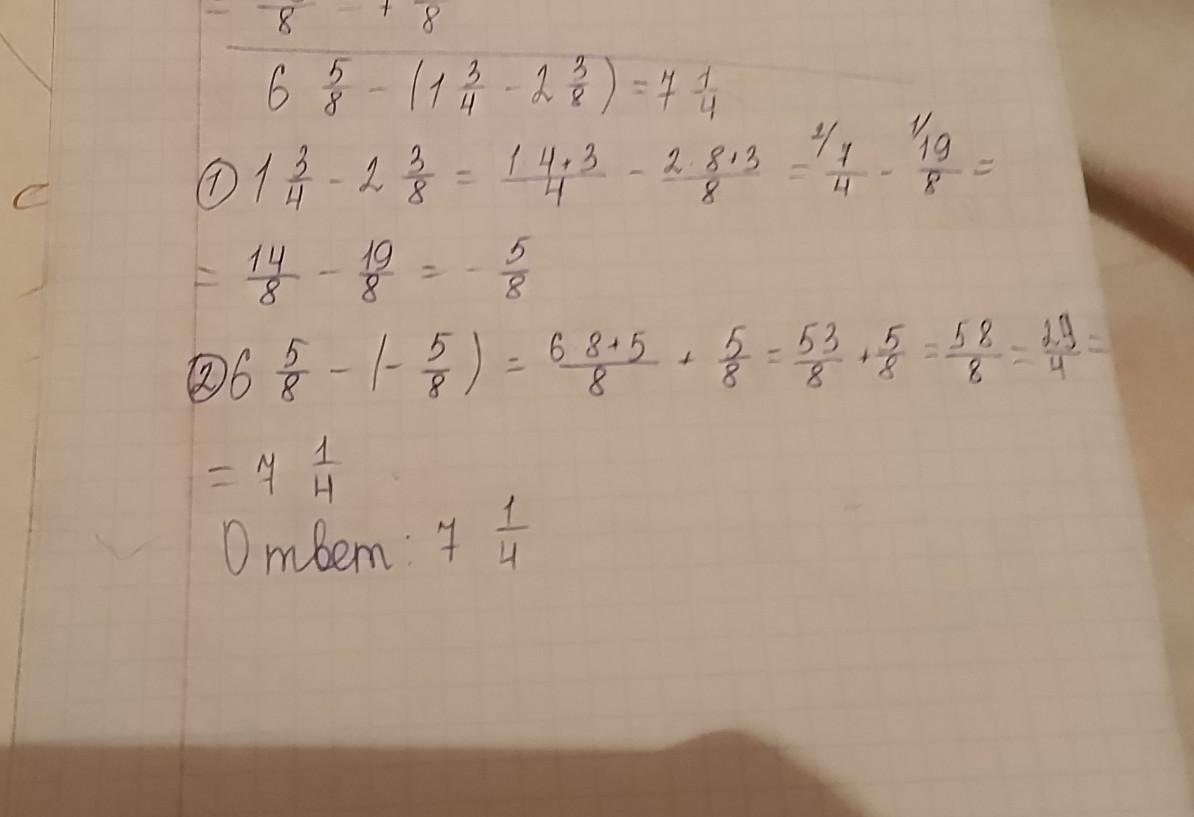 = 8 = 7 8
6 5/8 - (1 3/4 - 2 3/8) = 7 1/4
① 1 3/4 - 2 3/8 = 1·4+3/4 - 2·8+3/8 = 2/ 7/4 - 1/ 19/8 =
= 14/8 - 19/8 = - 5/8
② 6 5/8 - (- 5/8) = 6·8+5/8 + 5/8 = 53/8 + 5/8 = 58/8 = 29/4 =
= 7 1/4
Ответ: 7 1/4